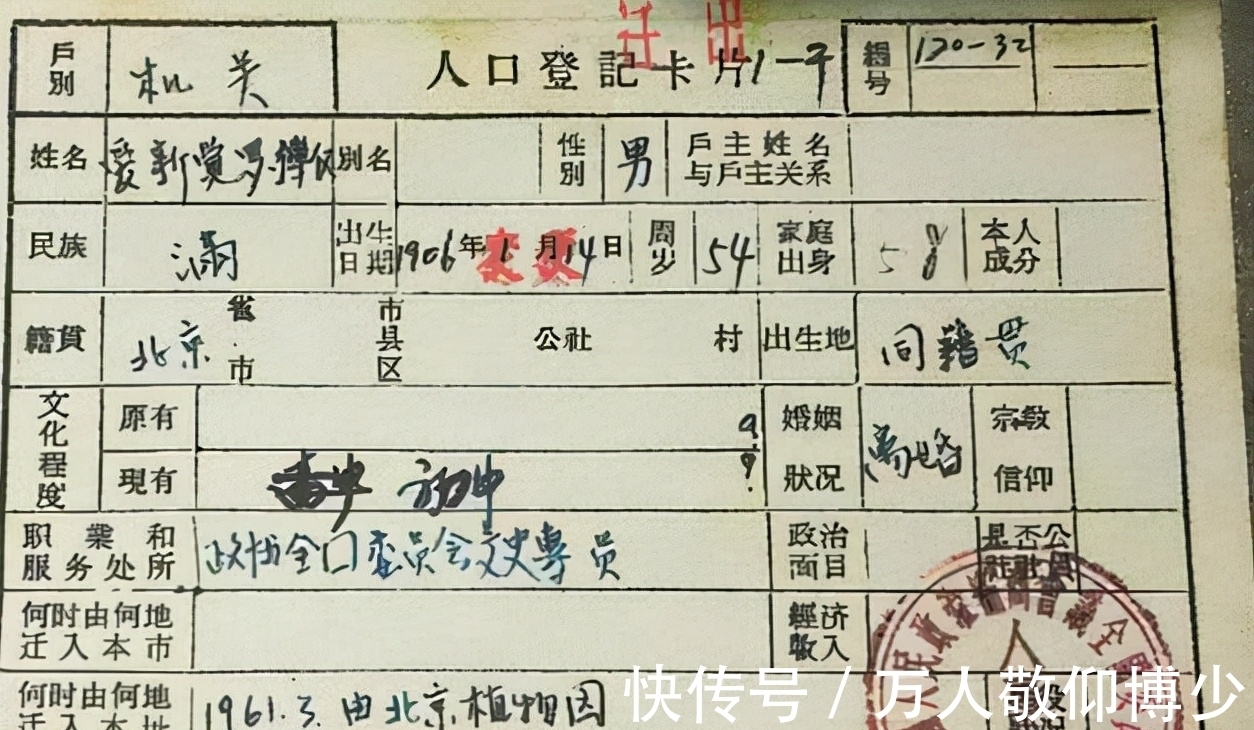 迁出
戶別 机关 人口登記卡片 1-于 編号 120-32
姓名 爱新觉罗 別名 性別 男 戶主姓名
与戶主关系
民族 满 出生日期 1906年1月14日 变更 周岁 54 家庭出身 本人成分
籍貫 北京 省市 市县区 公社 村 出生地 同籍贯
文化程度 原有 婚姻狀况 离婚 宗教信仰
現有 初中
职業和服务处所 政协全囗委员会文史專员 政治面目 是否公社社員
何时由何地迁入本市 經济收入
何时由何地迁入本地 1961.3.由北京植物园
快传号 / 万人敬仰博少